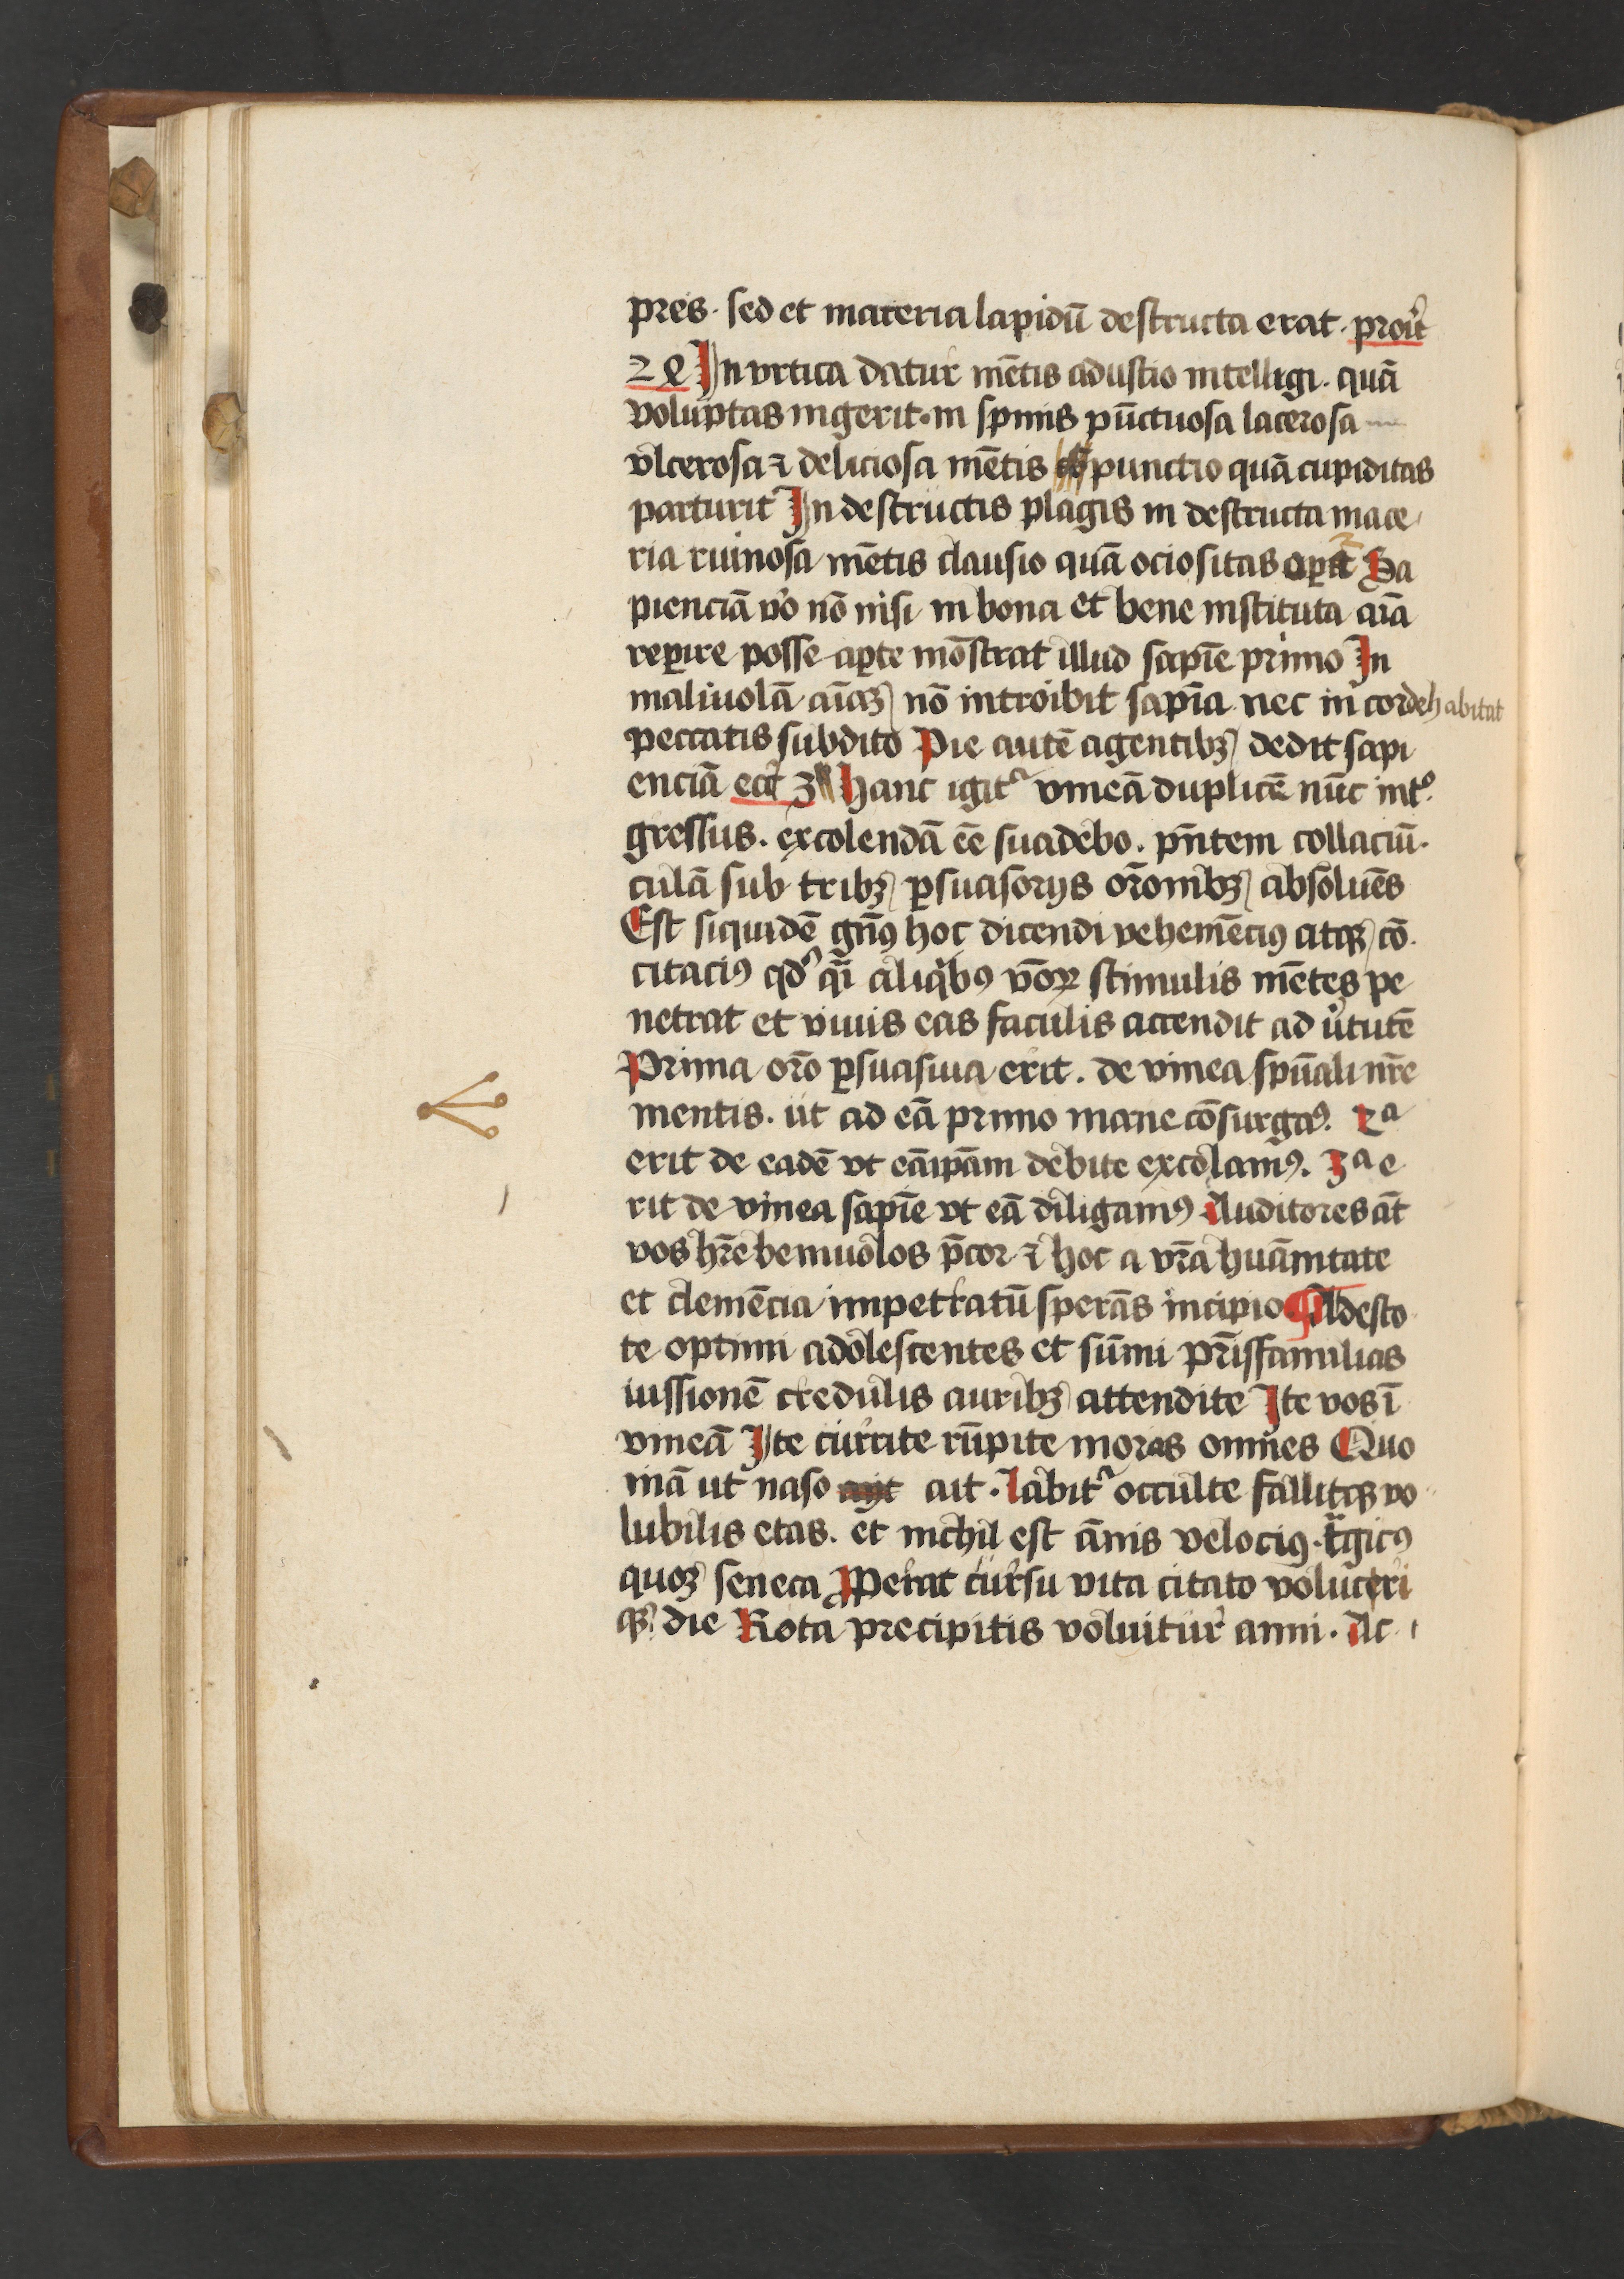 pres · sed et materia lapidū destructa erat · proũ
24 In vrtica datur mētis adustio intelligi · quā
voluptas ingerit · in spinis pūctuosa lacerosa
vlcerosa ⁊ deliciosa mētis punctio quā cupiditas
parturit In destructis plagis in destructa mace
ria ruinosa mētis clausio quā ociositas apit Sa
pienciā vo nō nisi in bona et bene instituta aīa
reꝑire posse aꝑte mōstrat illud sapīe primo In
maliuolā aīaꝫ nō introibit sapīa nec in corde habitat
peccatis subdito Pie autē agentibꝫ dedit sapi
enciā eccͥ Hanc igitͬ vineā duplicē nūc intᵒ
gressus · excolendā eē suadebo · pn̄tem collaciū
culā sub tribꝫ ꝑsuasorijs orōnibꝫ absoluēs
Est siquidē gn̄ꝰ hoc dicendi vehemēciꝰ atqꝫ cō
citaciꝰ qd' qͣi aliqͥbꝰ v̄boꝝ stimulis mētes pe
netrat et viuis eas faculis accendit ad v̓tutē
Prima oro ꝑsuasiua erit · de vinea spūali nr̄e
mentis · ut ad eā primo mane cōsurgaꝰ · 2ᵃ
erit de eadē vt eāipām debite excolamꝰ · 3ᵃ e
rit de vinea sapīe vt eā diligamꝰ Auditores āt
vos hr̄e beniuolos p̄cor ⁊ hoc a vr̄a huānitate
et clemēcia impetratū sperās incipio ¶ Adesto
te optimi adolescentes et sūmi pr̄isfamilias
iussionē credulis auribꝫ attendite Ite vos ī
vineā Ite currite rūpite moras omnes Quo
niā ut naso ait · labitͬ occulte fallitqꝫ vo
lubilis etas · et nichil est ānis velociꝰ · tͣgicꝰ
quoqꝫ seneca Properat cursu vita citato volucri
qꝫ die Rota precipitis voluitur anni · Ac